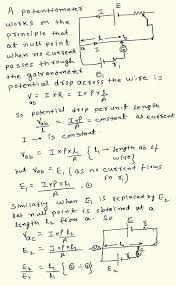 A potentiometer
works on the
principle that
at null point
when no current
passes through
the galvanometer E₁
potential drop across the wire is
V = I × R = I × ρ × L / A
ab
So potential drop per unit length
Vab / L = Iρ / A = constant as current
I → is constant.
Vab = I × ρ × l₁ / A {l₁ → length ab of
wire}
but Vab = E₁ (as no current flows
in r₁)
E₁ = I × ρ × l₁ / A — ①
Similarly when E₁ is replaced by E₂
let null point is obtained at a
length l₂ from a. So
Vac = I × ρ × l₂ / A
E₂ = I × ρ × l₂ / A — ②
E₂ / E₁ = l₂ / l₁ {② ÷ ①}